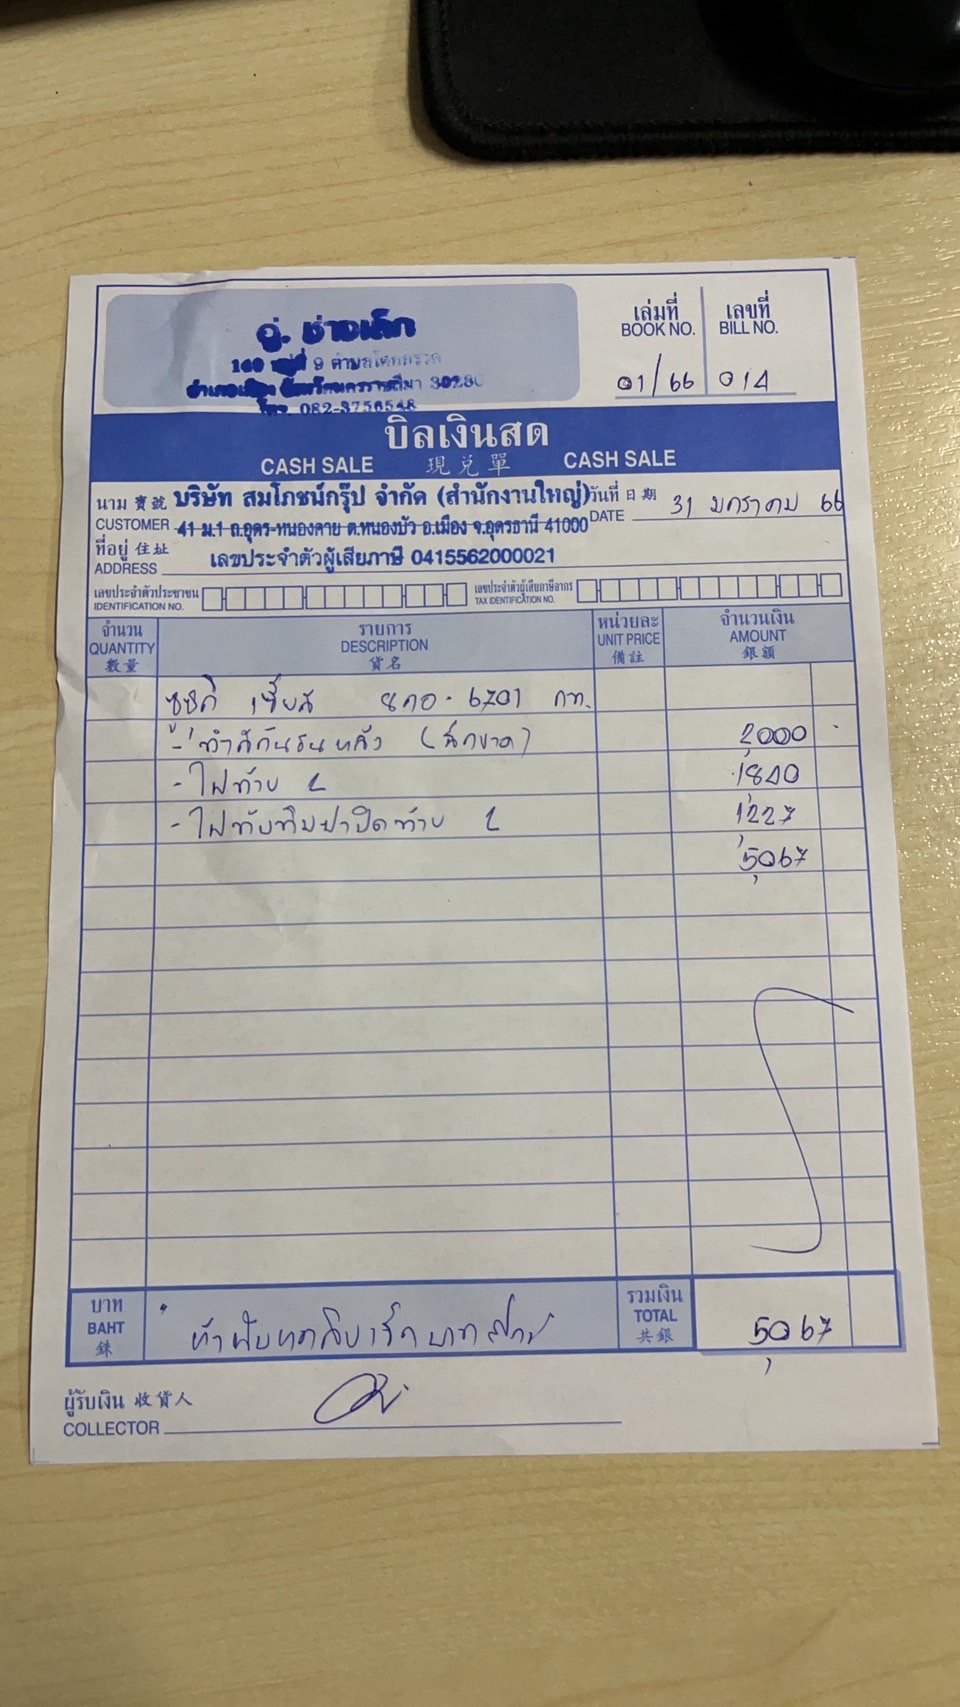 อู่. ช่างเล็ก
160 หมู่ที่ 9 ตำบลโคกกรวด
อำเภอเมือง จังหวัดนครราชสีมา 30280
โทร. 082-3756548
เล่มที่ เลขที่
BOOK NO. BILL NO.
01/66 014
บิลเงินสด
CASH SALE 現兌單 CASH SALE
นาม 寶號 บริษัท สมโภชน์กรุ๊ป จำกัด (สำนักงานใหญ่) วันที่ 日期
CUSTOMER 41 ม.1 ถ.อุดร-หนองคาย ต.หนองบัว อ.เมือง จ.อุดรธานี 41000 DATE 31 มกราคม 66
ที่อยู่ 住址
ADDRESS เลขประจำตัวผู้เสียภาษี 0415562000021
เลขประจำตัวประชาชน เลขประจำตัวผู้เสียภาษีอากร
IDENTIFICATION NO. TAX IDENTIFICATION NO.
จำนวน รายการ หน่วยละ จำนวนเงิน
QUANTITY DESCRIPTION UNIT PRICE AMOUNT
數量 貨名 備註 銀額
6701 กท.
- ทำสีกันชนหลัง (ฉีกขาด) 2000 -
- ไฟท้าย L 1840
- ไฟทับทิมฝาปิดท้าย L 1227
5067
บาท รวมเงิน
BAHT ห้าพันหกสิบเจ็ดบาทถ้วน TOTAL 5067
銖 共銀
ผู้รับเงิน 收貨人
COLLECTOR